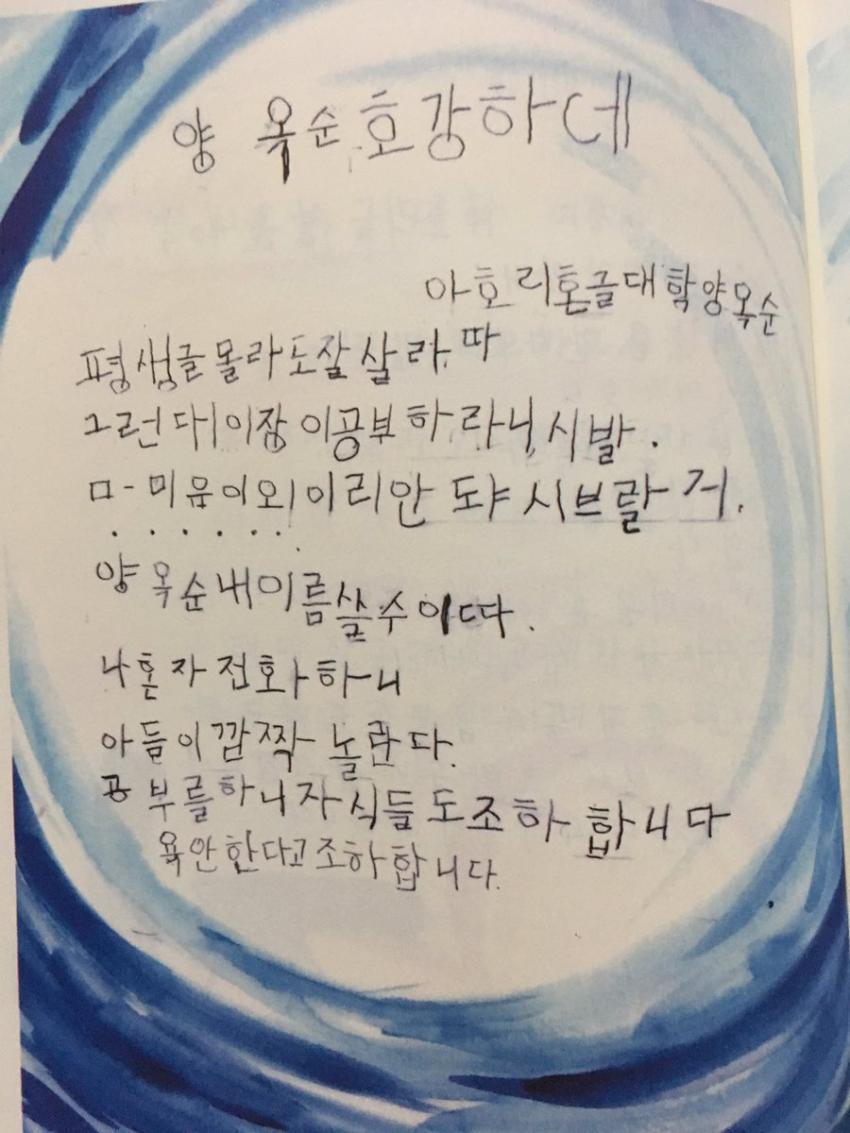 양 옥순 호강하데
아호리혼글대학양옥순
평생글몰라도잘살라따
그런대이장이공부하라니,시발.
ㅁ-미음이외이리안 도ㅑ 시브랄거.
. . . . . . .
양옥순내이름쓸수이따.
나혼자전화하니
아들이깜짝놀란다.
공부를하니자식들도조하합니다
욕안한다고조하합니다.